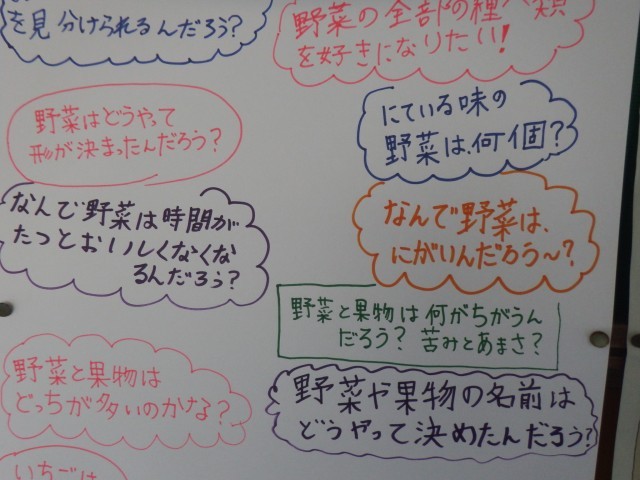 を見分けられるんだろう?
野菜の全部の種類
を好きになりたい!
野菜はどうやって
形が決まったんだろう?
にている味の
野菜は、何個?
なんで野菜は時間が
たつとおいしくなくな
るんだろう?
なんで野菜は、
にがいんだろう〜?
野菜と果物は何がちがうん
だろう? 苦みとあまさ?
野菜と果物は
どっちが多いのかな?
野菜や果物の名前は
どうやって決めたんだろう?
いちごは